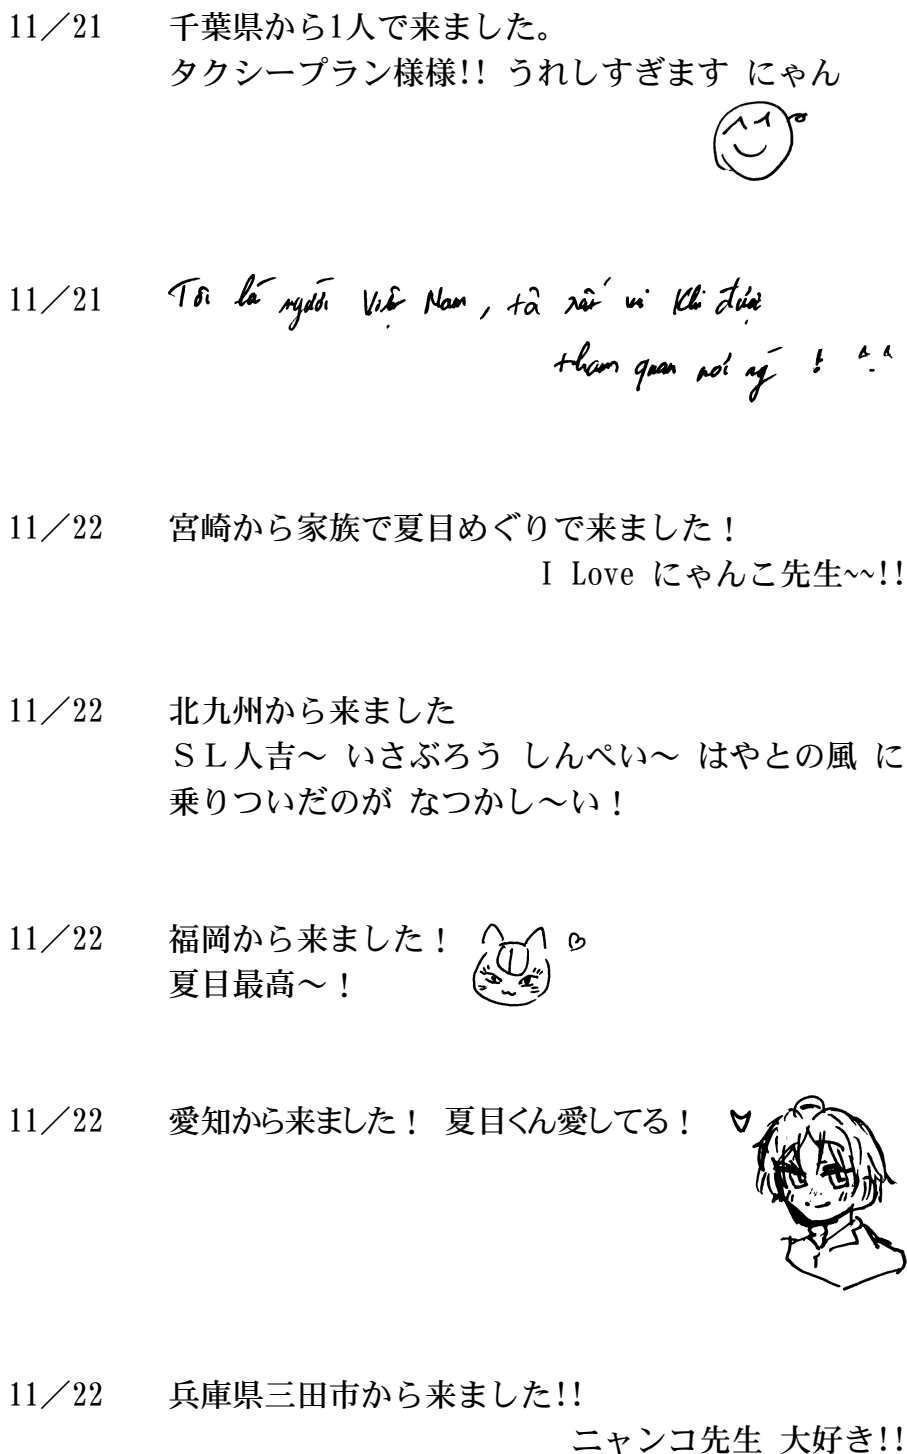 11／21 千葉県から1人で来ました。
タクシープラン様様!! うれしすぎます にゃん
11／21 Tôi là người Việt Nam, tôi rất vui khi được
tham quan nơi
11／22 宮崎から家族で夏目めぐりで来ました！
I Love にゃんこ先生~~!!
11／22 北九州から来ました
ＳＬ人吉～ いさぶろう しんぺい～ はやとの風 に
乗りついだのが なつかし～い！
11／22 福岡から来ました！
夏目最高～！
11／22 愛知から来ました！ 夏目くん愛してる！
11／22 兵庫県三田市から来ました!!
ニャンコ先生 大好き!!